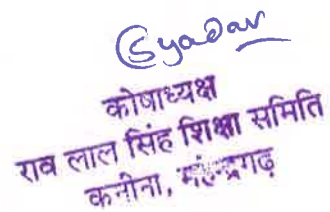 Syadav
कोषाध्यक्ष
राव लाल सिंह शिक्षा समिति
कनीना, महेन्द्रगढ़